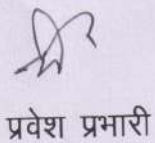 प्रवेश प्रभारी